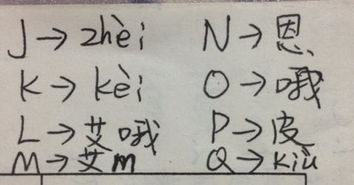 J→zhèi N→恩
K→kèi O→哦
L→艾哦 P→皮
M→艾m Q→kiù